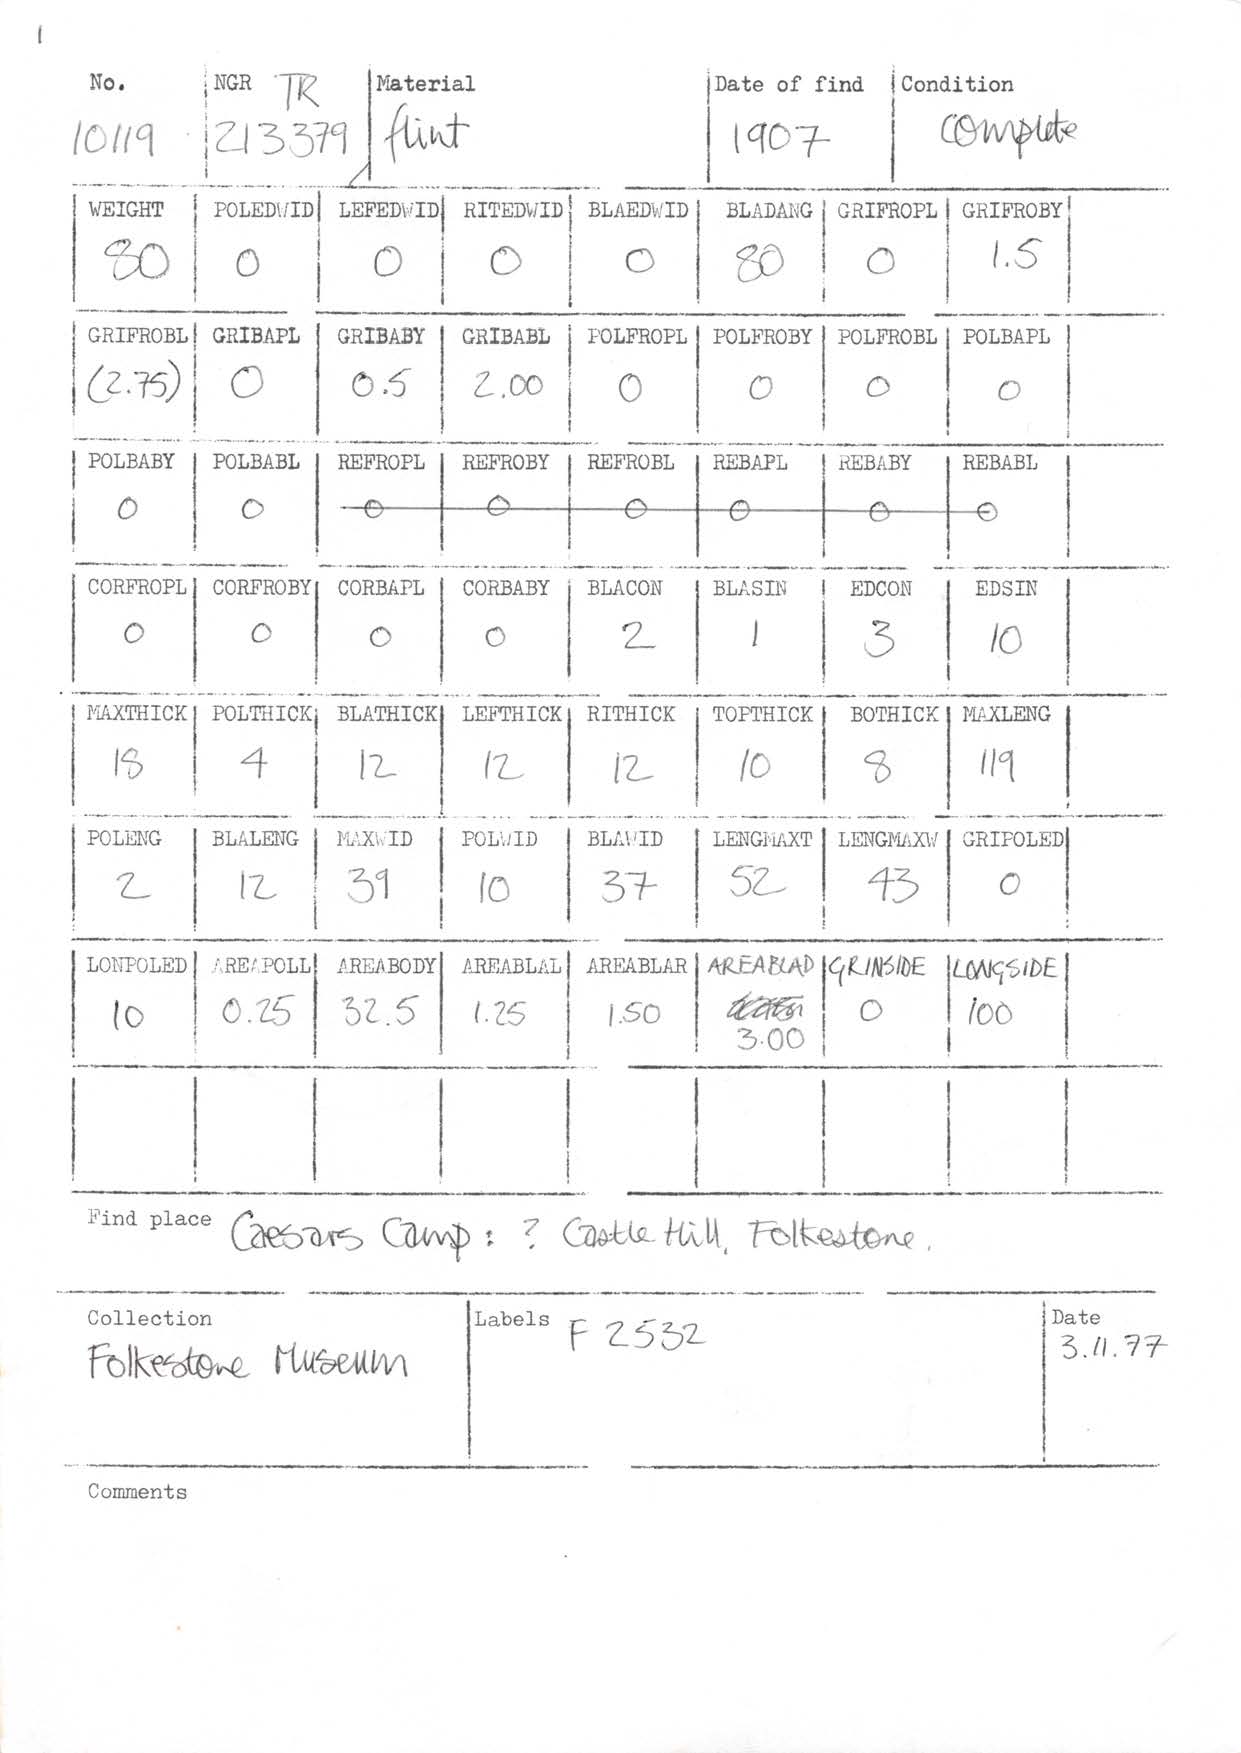 1
No. NGR TR Material Date of find Condition
10119 213379 flint 1907 complete
WEIGHT POLEDWID LEFEDWID RITEDWID BLAEDWID BLADANG GRIFROPL GRIFROBY
80 0 0 0 0 80 0 1.5
GRIFROBL GRIBAPL GRIBABY GRIBABL POLFROPL POLFROBY POLFROBL POLBAPL
(2.75) 0 0.5 2.00 0 0 0 0
POLBABY POLBABL REFROPL REFROBY REFROBL REBAPL REBABY REBABL
0 0 0 0 0 0 0 0
CORFROPL CORFROBY CORBAPL CORBABY BLACON BLASIN EDCON EDSIN
0 0 0 0 2 1 3 10
MAXTHICK POLTHICK BLATHICK LEFTHICK RITHICK TOPTHICK BOTHICK MAXLENG
18 4 12 12 12 10 8 119
POLENG BLALENG MAXWID POLWID BLAWID LENGMAXT LENGMAXW GRIPOLED
2 12 39 10 37 52 43 0
LONPOLED AREAPOLL AREABODY AREABLAL AREABLAR AREABLAD GRINSIDE LONGSIDE
10 0.25 32.5 1.25 1.50 3.00 0 100
Find place Caesars Camp: ? Castle Hill, Folkestone.
Collection Labels F 2532 Date
Folkestone Museum 3.11.77
Comments